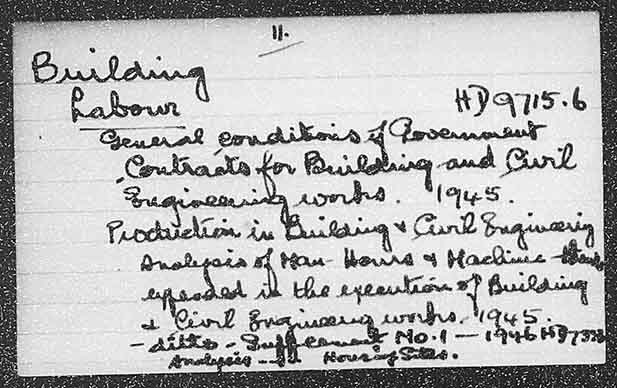 11.
Building
Labour HD9715.6
General conditions of Government
Contracts for Building and Civil
Engineering works. 1945.
Production in Building & Civil Engineering
Analysis of Man-Hours & Machine-Hours
expended in the execution of Building
& Civil Engineering works. 1945.
- ditto - Supplement No. 1 - 1946 HD7333
Analysis Housing Sites.